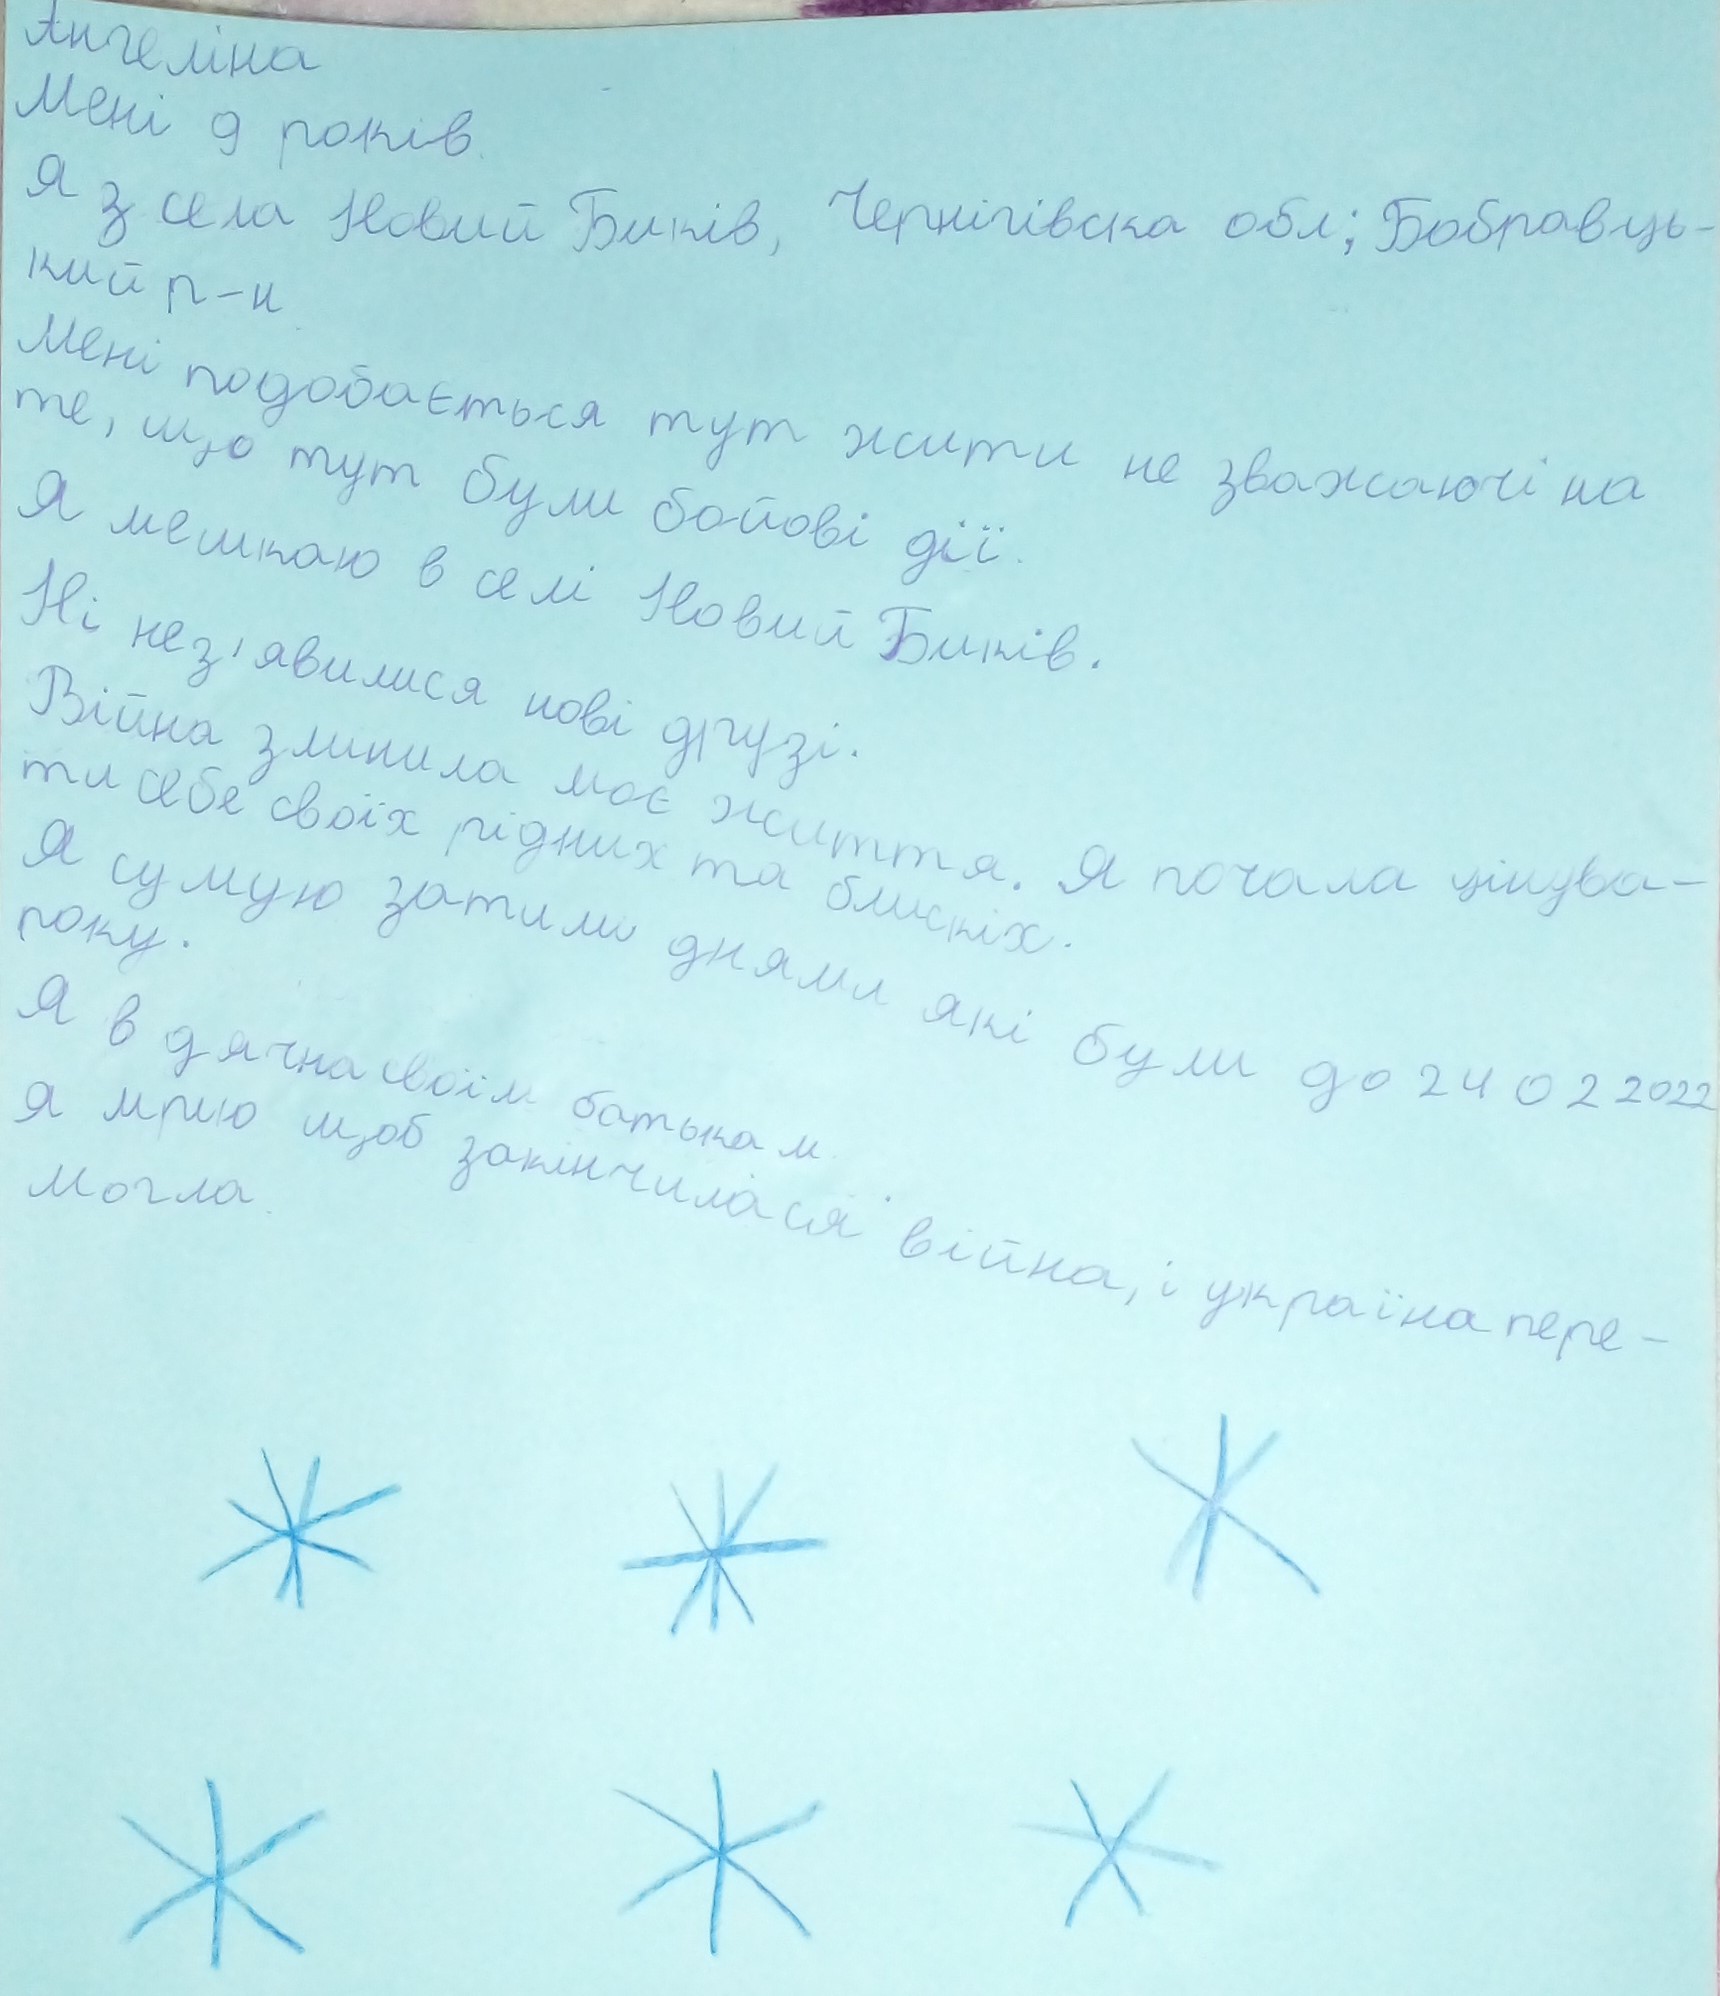 Ангеліна
Мені 9 років.
Я з села Новий Биків, Чернігівска обл; Бобравць-
кий р-н.
Мені подобається тут жити не зважаючі на
те, що тут були бойові дії.
Я мешкаю в селі Новий Биків.
Ні нез'явилися нові друзі.
Війна зминила моє життя. Я почала цінува-
ти себе своїх рідних та блискіх.
Я сумую затими днями які були до 24 02 2022
року.
Я в дячна своїм батькам.
Я мрию щоб закінчилася війна, і україна пере-
могла.